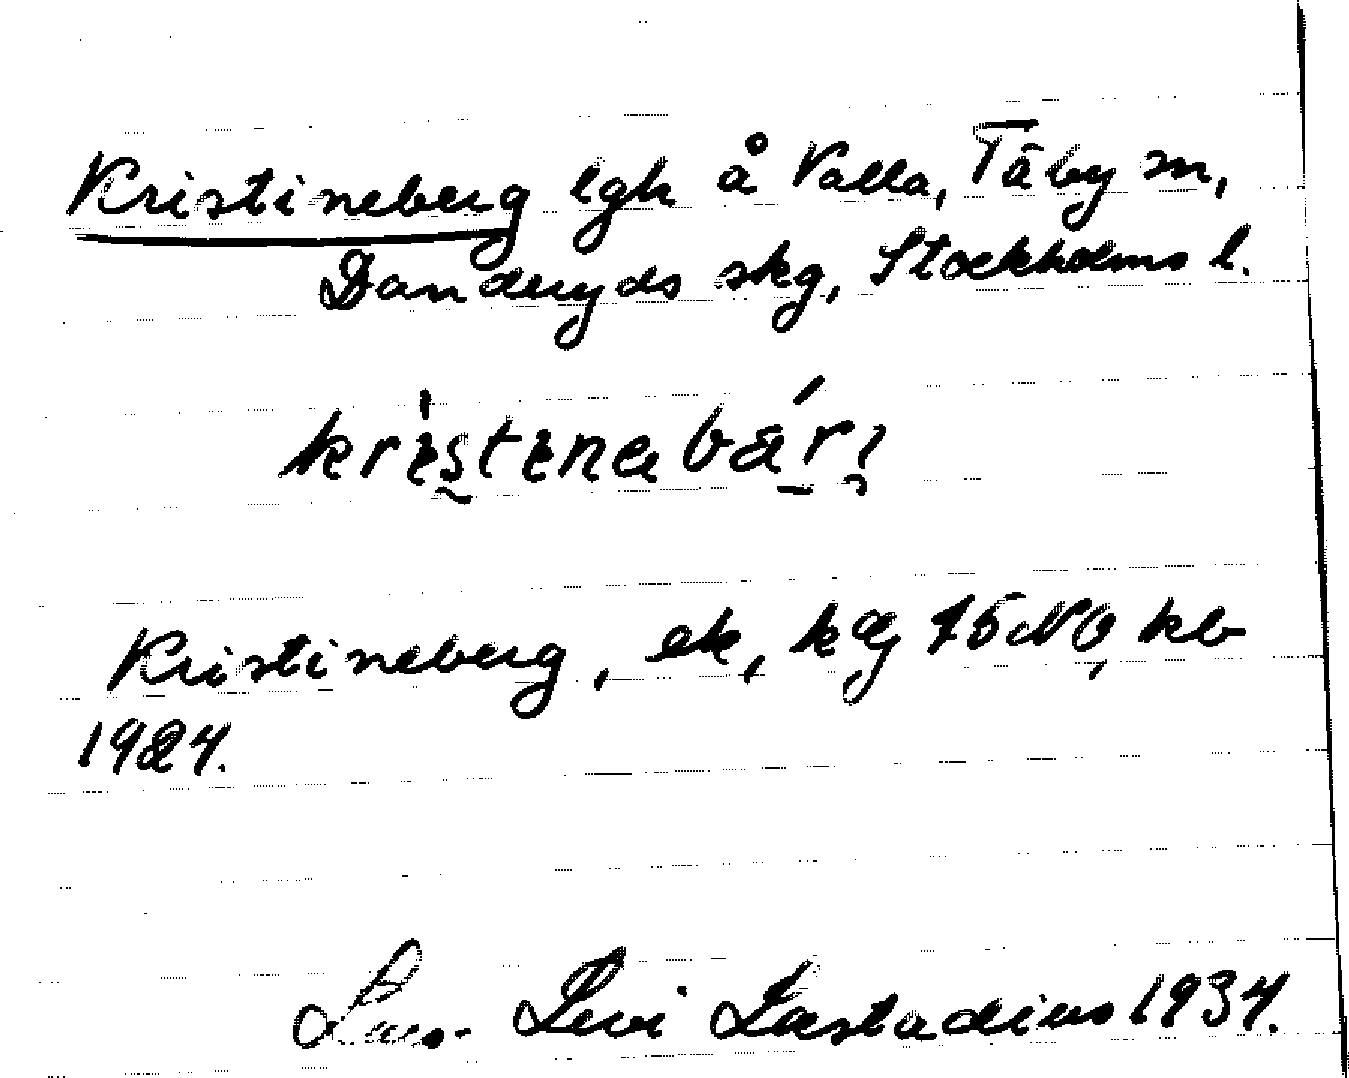 Kristineberg lgh å Valla, Täby sn,
Danderyds skg, Stockholms l.
Kristineberg, ek, kg 75 NO, kb
1924.
Lars-Levi Læstadius 1934.